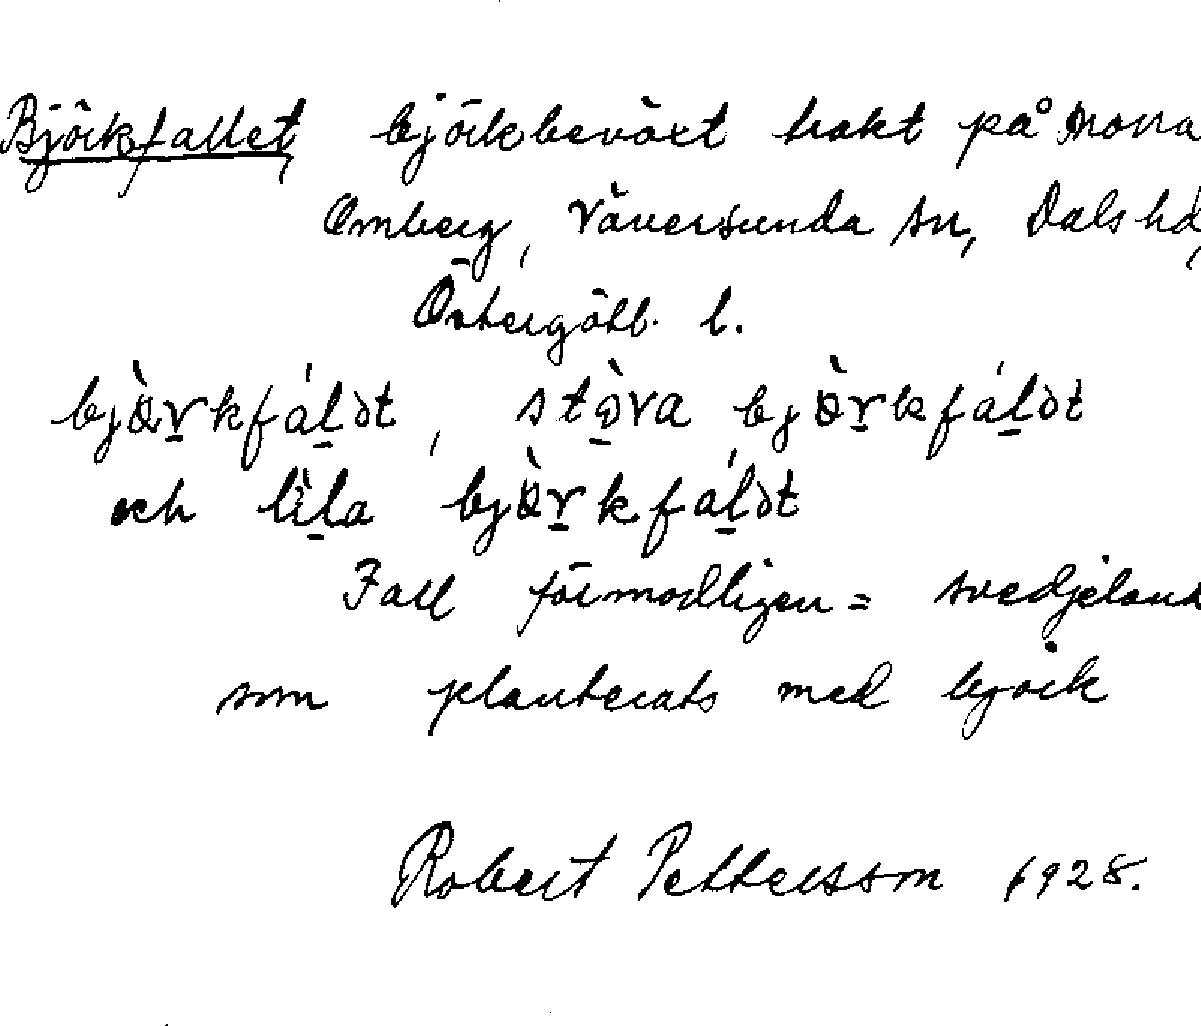 Björkfallet, björkbeväxt trakt på norra
Omberg, Väversunda sn, Dals hd,
Östergötl. l.
bjɷ̀r̠kfál̠ət, stɷ̠̀va bjɷ̀r̠kfál̠ət
och lìl̠a bjɷ̀r̠kfál̠ət
Fall förmodligen = svedjeland
som planterats med björk
Robert Pettersson 1928.